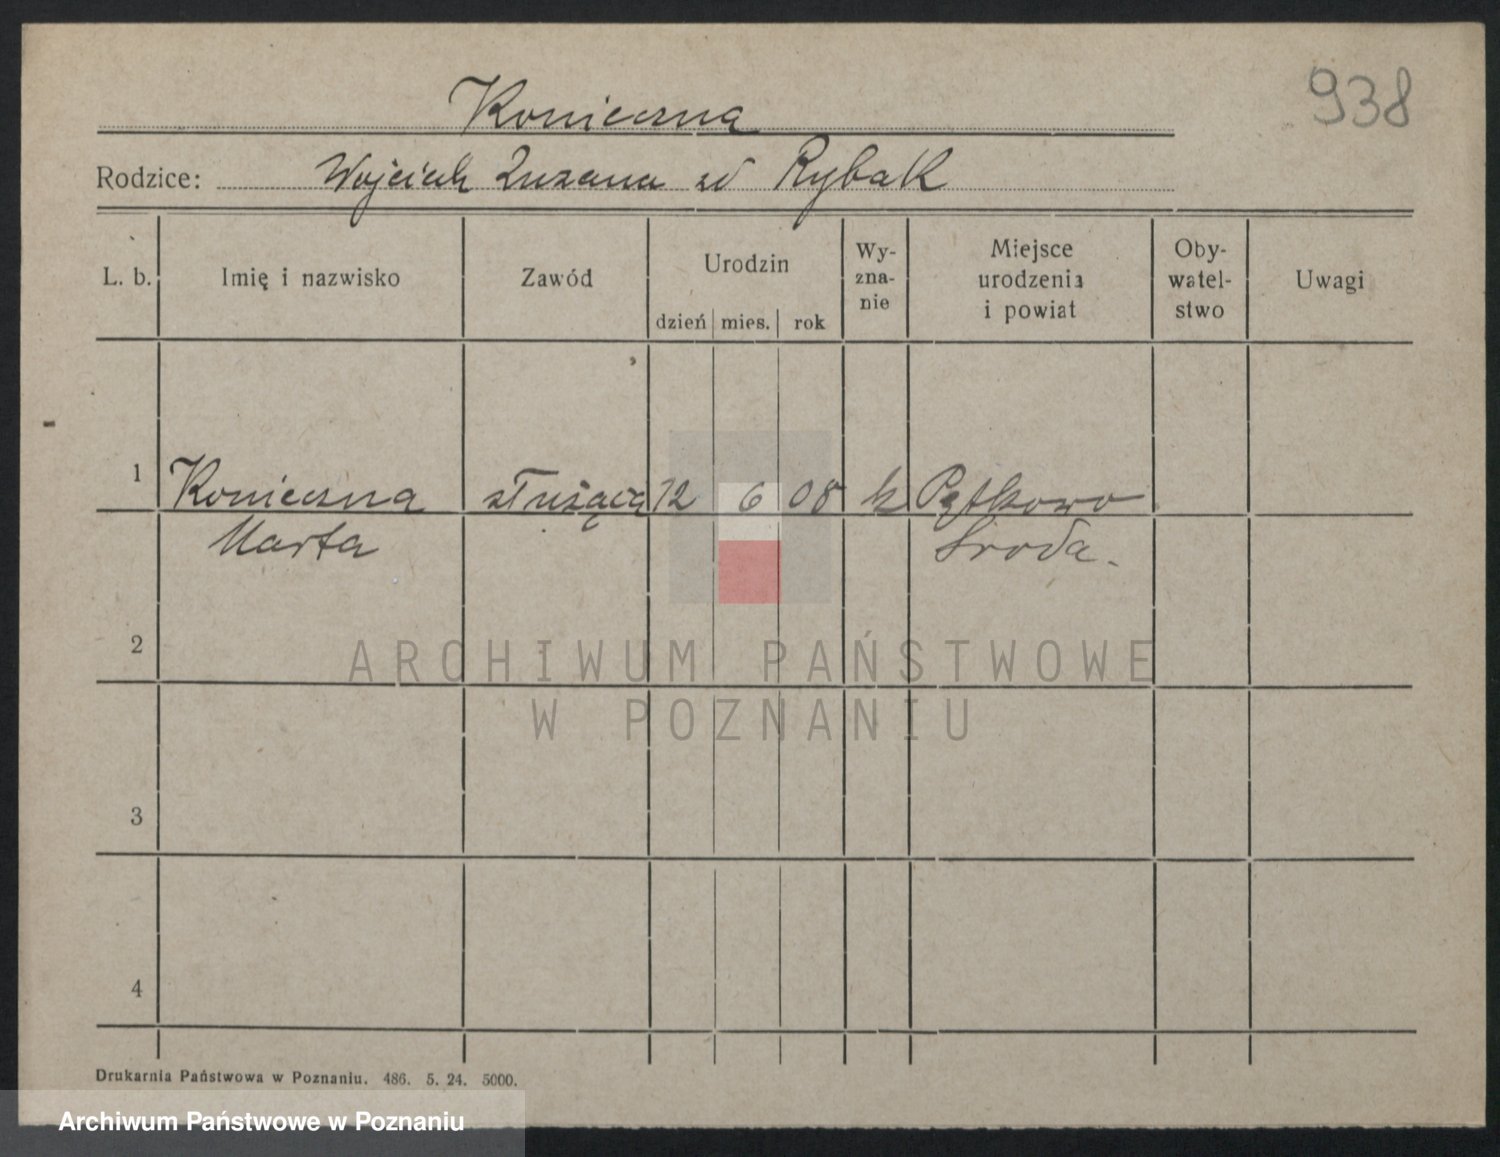 938
Konieczna
Rodzice: Wojciech Zuzana zd Rybak
L. b. Imię i nazwisko Zawód Urodzin dzień mies. rok Wy-zna-nie Miejsce urodzenia i powiat Oby-watel-stwo Uwagi
1 Konieczna służąca 12 6 08 k Pątkowo
Marta Środa.
2
ARCHIWUM PAŃSTWOWE
W POZNANIU
3
4
Drukarnia Państwowa w Poznaniu. 486. 5. 24. 5000.
Archiwum Państwowe w Poznaniu